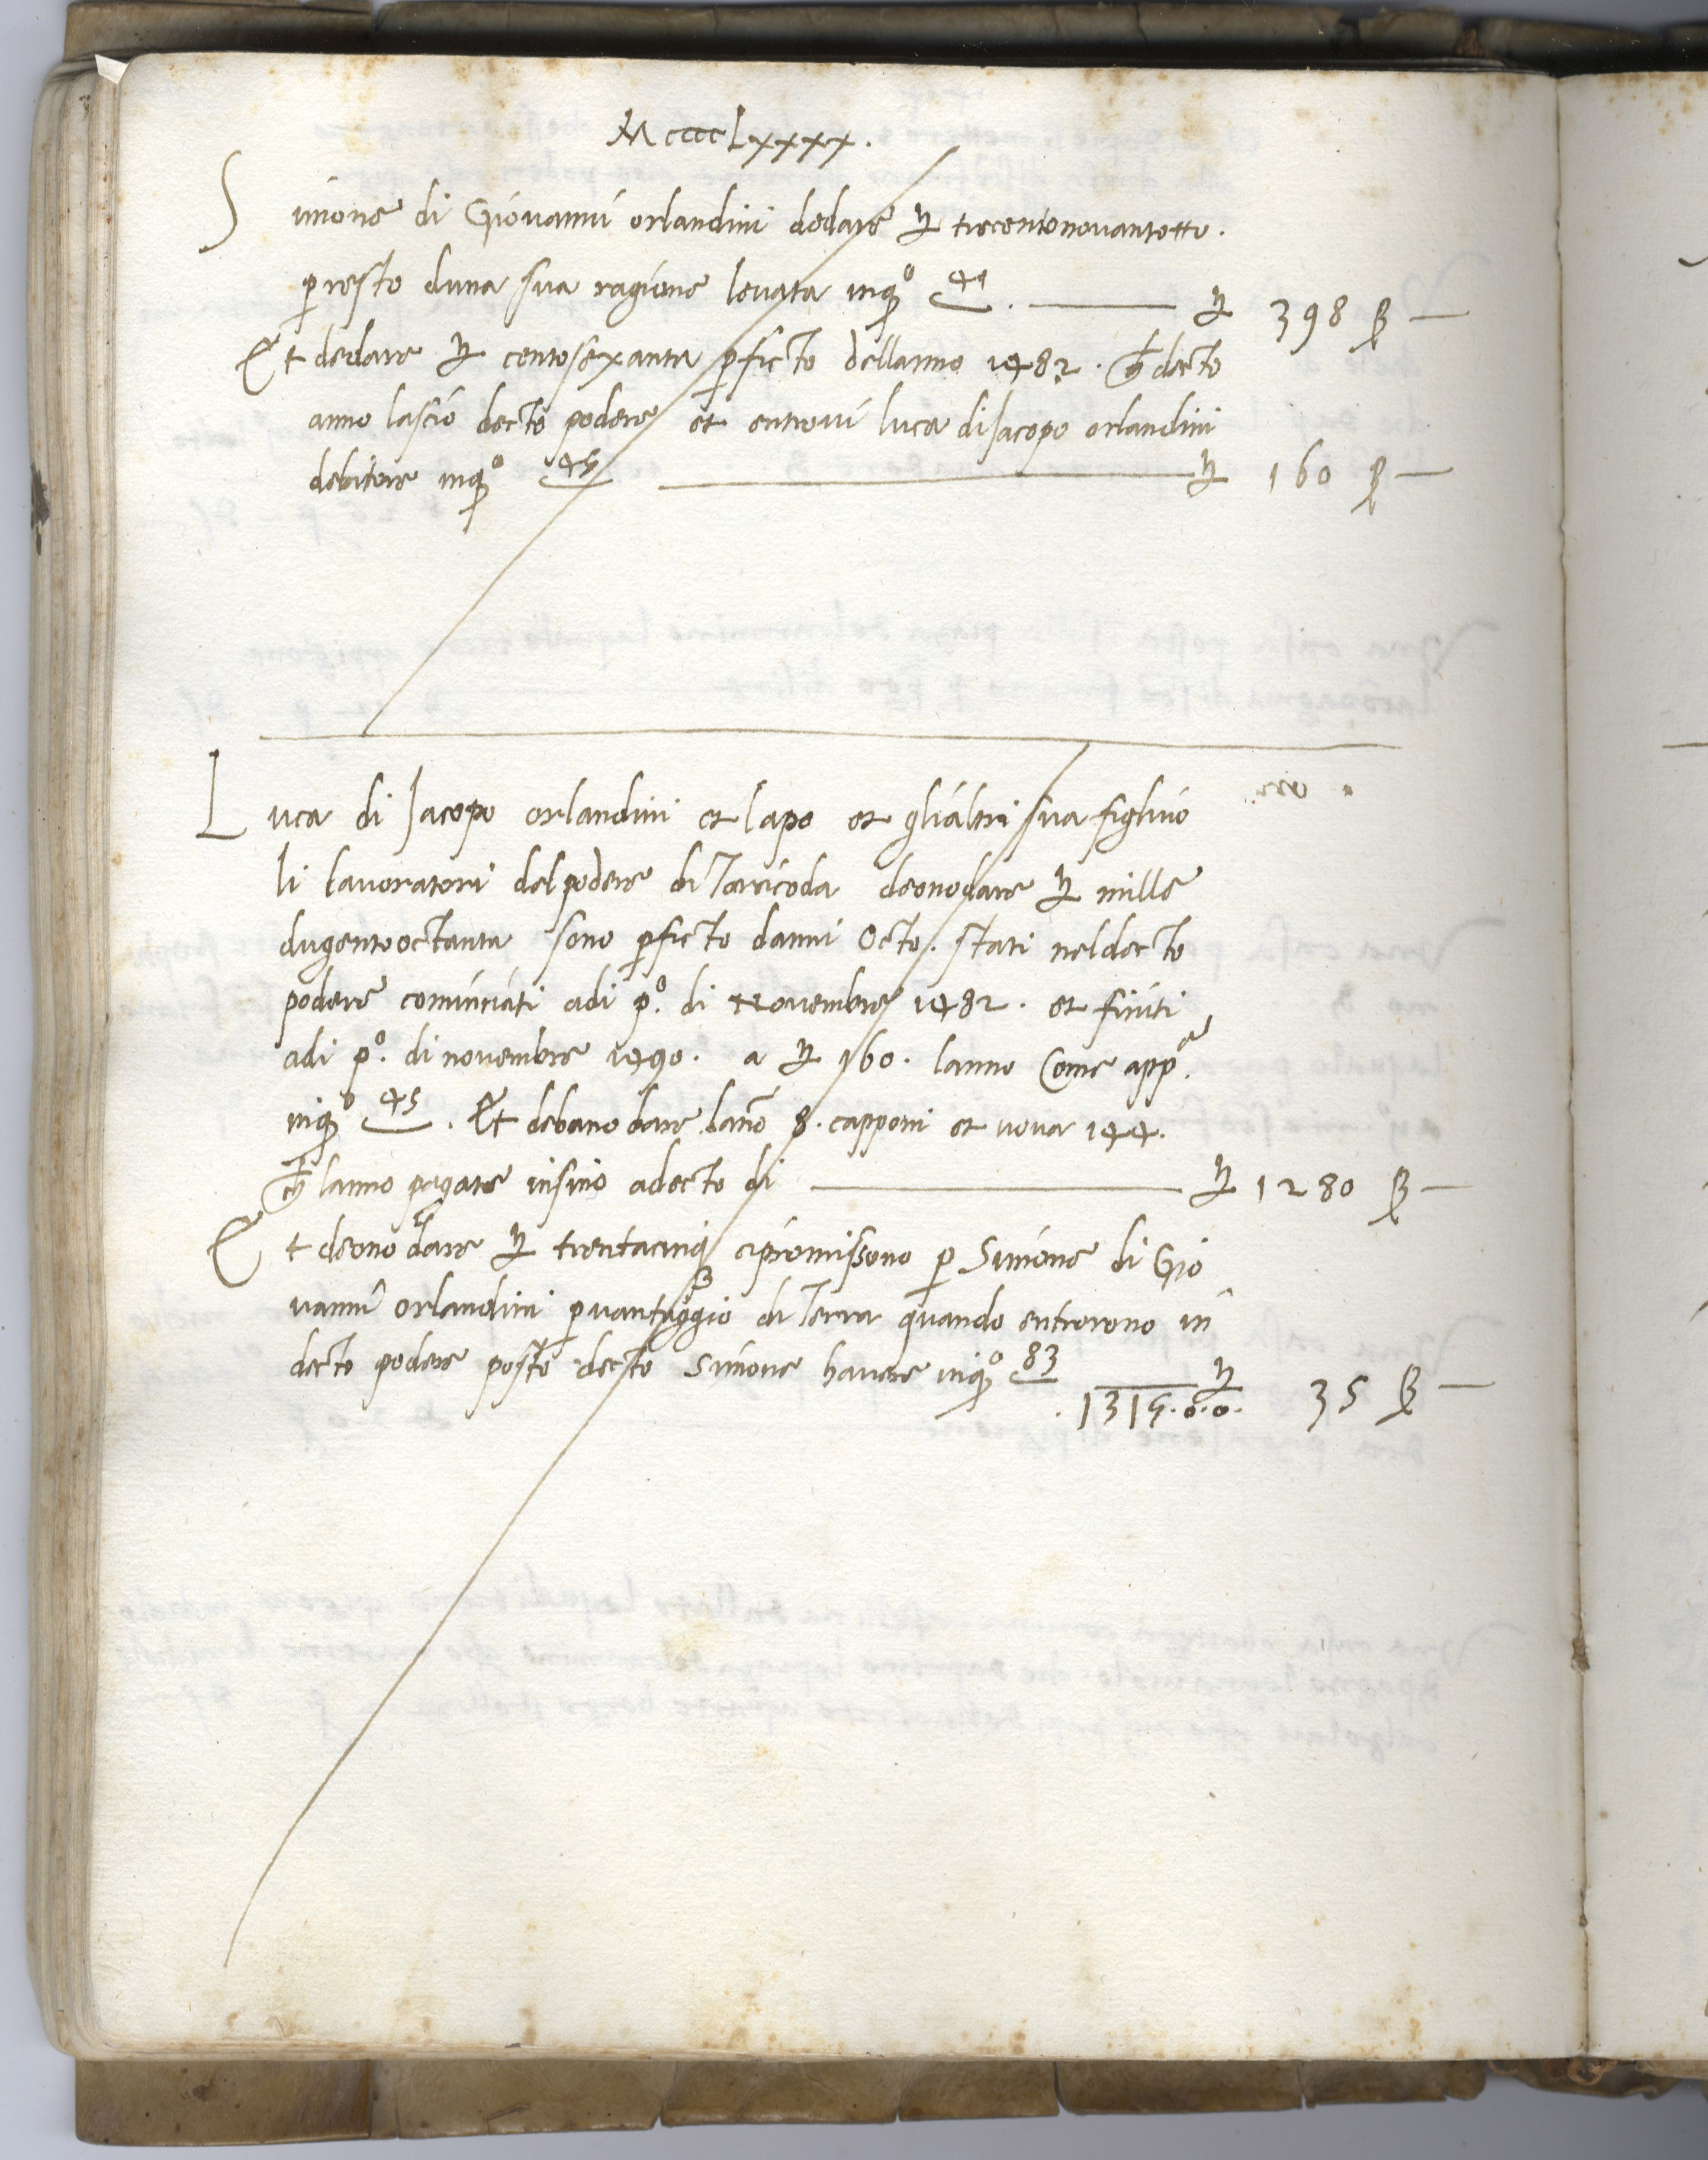 MccccLxxxx.
Simone di Giovanni orlandini dedare ₶ trecentonovantotto.
p resto duna sua ragione levata inqo 41. ₶ 398 ß —
Et dedare ₶ centosexanta pficto dellanno 1482. ch decto
anno lasciò decto podere et entrovi luca diJacopo orlandini
debitore inqo 45 ₶ 160 ß —
Luca di Jacopo orlandini et lapo et glialtri sua figluo
li lavoratori delpodere di deonodare ₶ mille
dugentooctanta sono pficto danni octo. stati neldecto
podere cominciati adi po. di Novembre 1482. et finiti
adi po. di novembre 1490. a ₶ 160. lanno Come appe.
inqo 45. Et debano dare lano 8. capponi et uova 144.
ch lanno pagate insino adecto di ₶ 1280 ß —
Et deono dare ₶ trentacinq cipromissono p Simone di Gio
vanni orlandini pvantaggio di Terra quando entrorono in
decto podere posto decto Simone havere inqo 83 ₶ 35 ß —
. 1315.0.0.